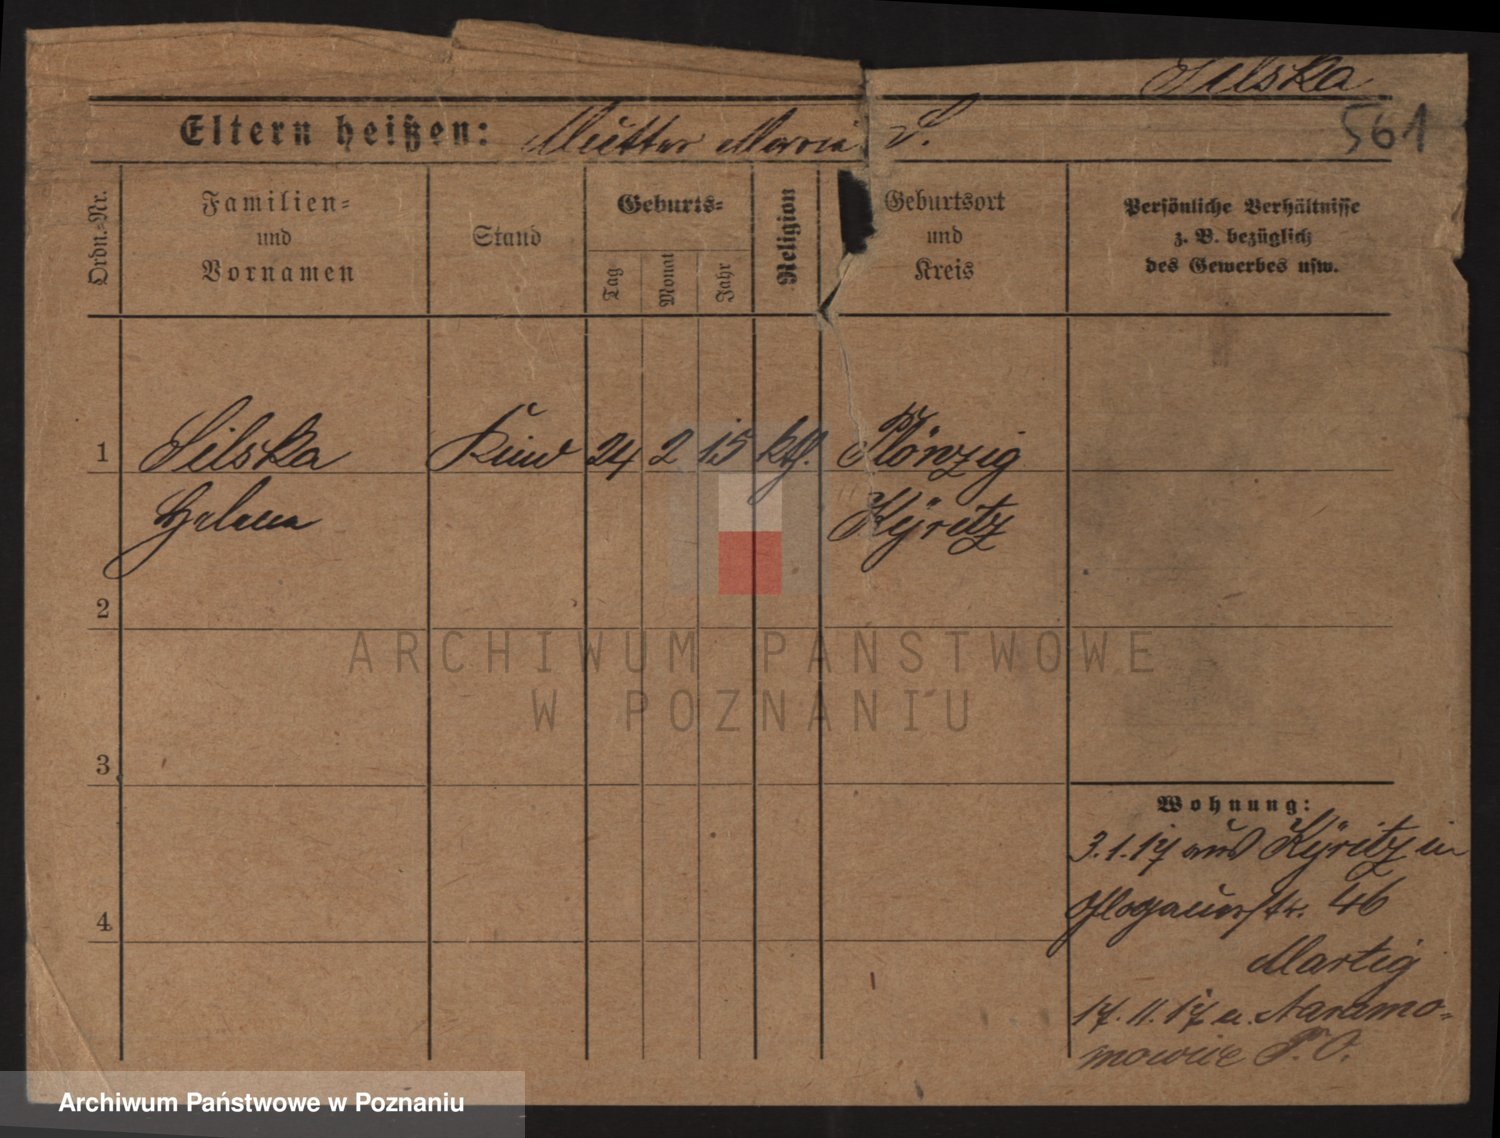 Silska
561
Eltern heißen: Mutter Maria S.
Ordn.-Nr.
Familien-
und
Vornamen
Stand
Geburts-
Tag
Monat
Jahr
Religion
Geburtsort
und
Kreis
Persönliche Verhältnisse
z. B. bezüglich
des Gewerbes usw.
1 Silska Kind 24 2 15 kth.
Helena Kyritz
2
3
4
Wohnung:
3.1.17 aus Kyritz in
Glogauerstr. 46
Martig
17.11.17 n. Naramo-
mowice P. O.
ARCHIWUM PAŃSTWOWE
W POZNANIU
Archiwum Państwowe w Poznaniu